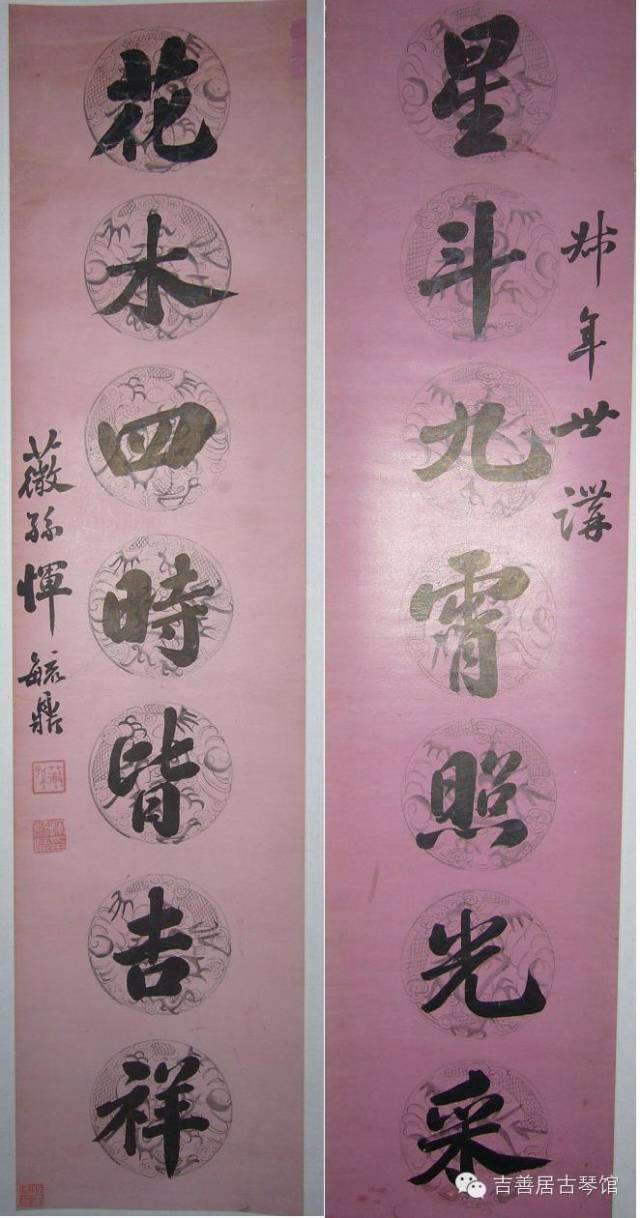 星斗九霄照光采
年世講
花木四時皆吉祥
薇孫惲毓鼎
吉善居古琴馆